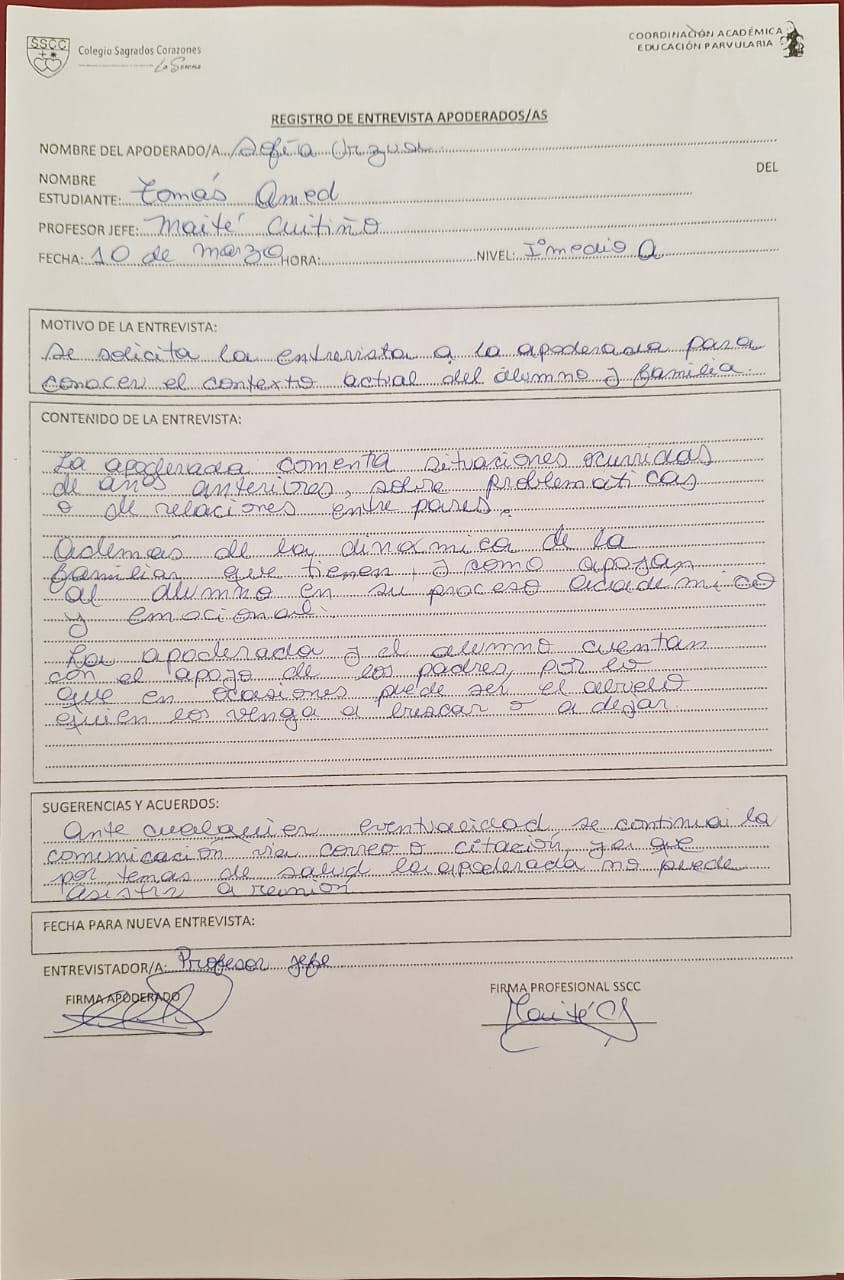 SSCC
Colegio Sagrados Corazones
La Serena
COORDINACIÓN ACADÉMICA
EDUCACIÓN PARVULARIA
REGISTRO DE ENTREVISTA APODERADOS/AS
NOMBRE DEL APODERADO/A Sofía Urzua
DEL
NOMBRE
ESTUDIANTE: Tomás Amed
PROFESOR JEFE: Maité Cuitiño
FECHA: 10 de marzo HORA: NIVEL: I° medio A
MOTIVO DE LA ENTREVISTA:
Se solicita la entrevista a la apoderada para
conocer el contexto actual del alumno y familia.
CONTENIDO DE LA ENTREVISTA:
La apoderada comenta situaciones ocurridas
de años anteriores, sobre problematicas
o de relaciones entre pares.
Además de la dinamica de la
familiar que tienen y como apoyan
al alumno en su proceso academico
y emocional.
La apoderada y el alumno cuentan
con el apoyo de los padres, por lo
que en ocasiones puede ser el abuelo
quien los venga a buscar o a dejar.
SUGERENCIAS Y ACUERDOS:
Ante cualquier eventualidad se continua la
comunicación via correo o citación, ya que
por temas de salud la apoderada no puede
asistir a reunión
FECHA PARA NUEVA ENTREVISTA:
ENTREVISTADOR/A: Profesor jefe
FIRMA APODERADO
FIRMA PROFESIONAL SSCC
Maité C